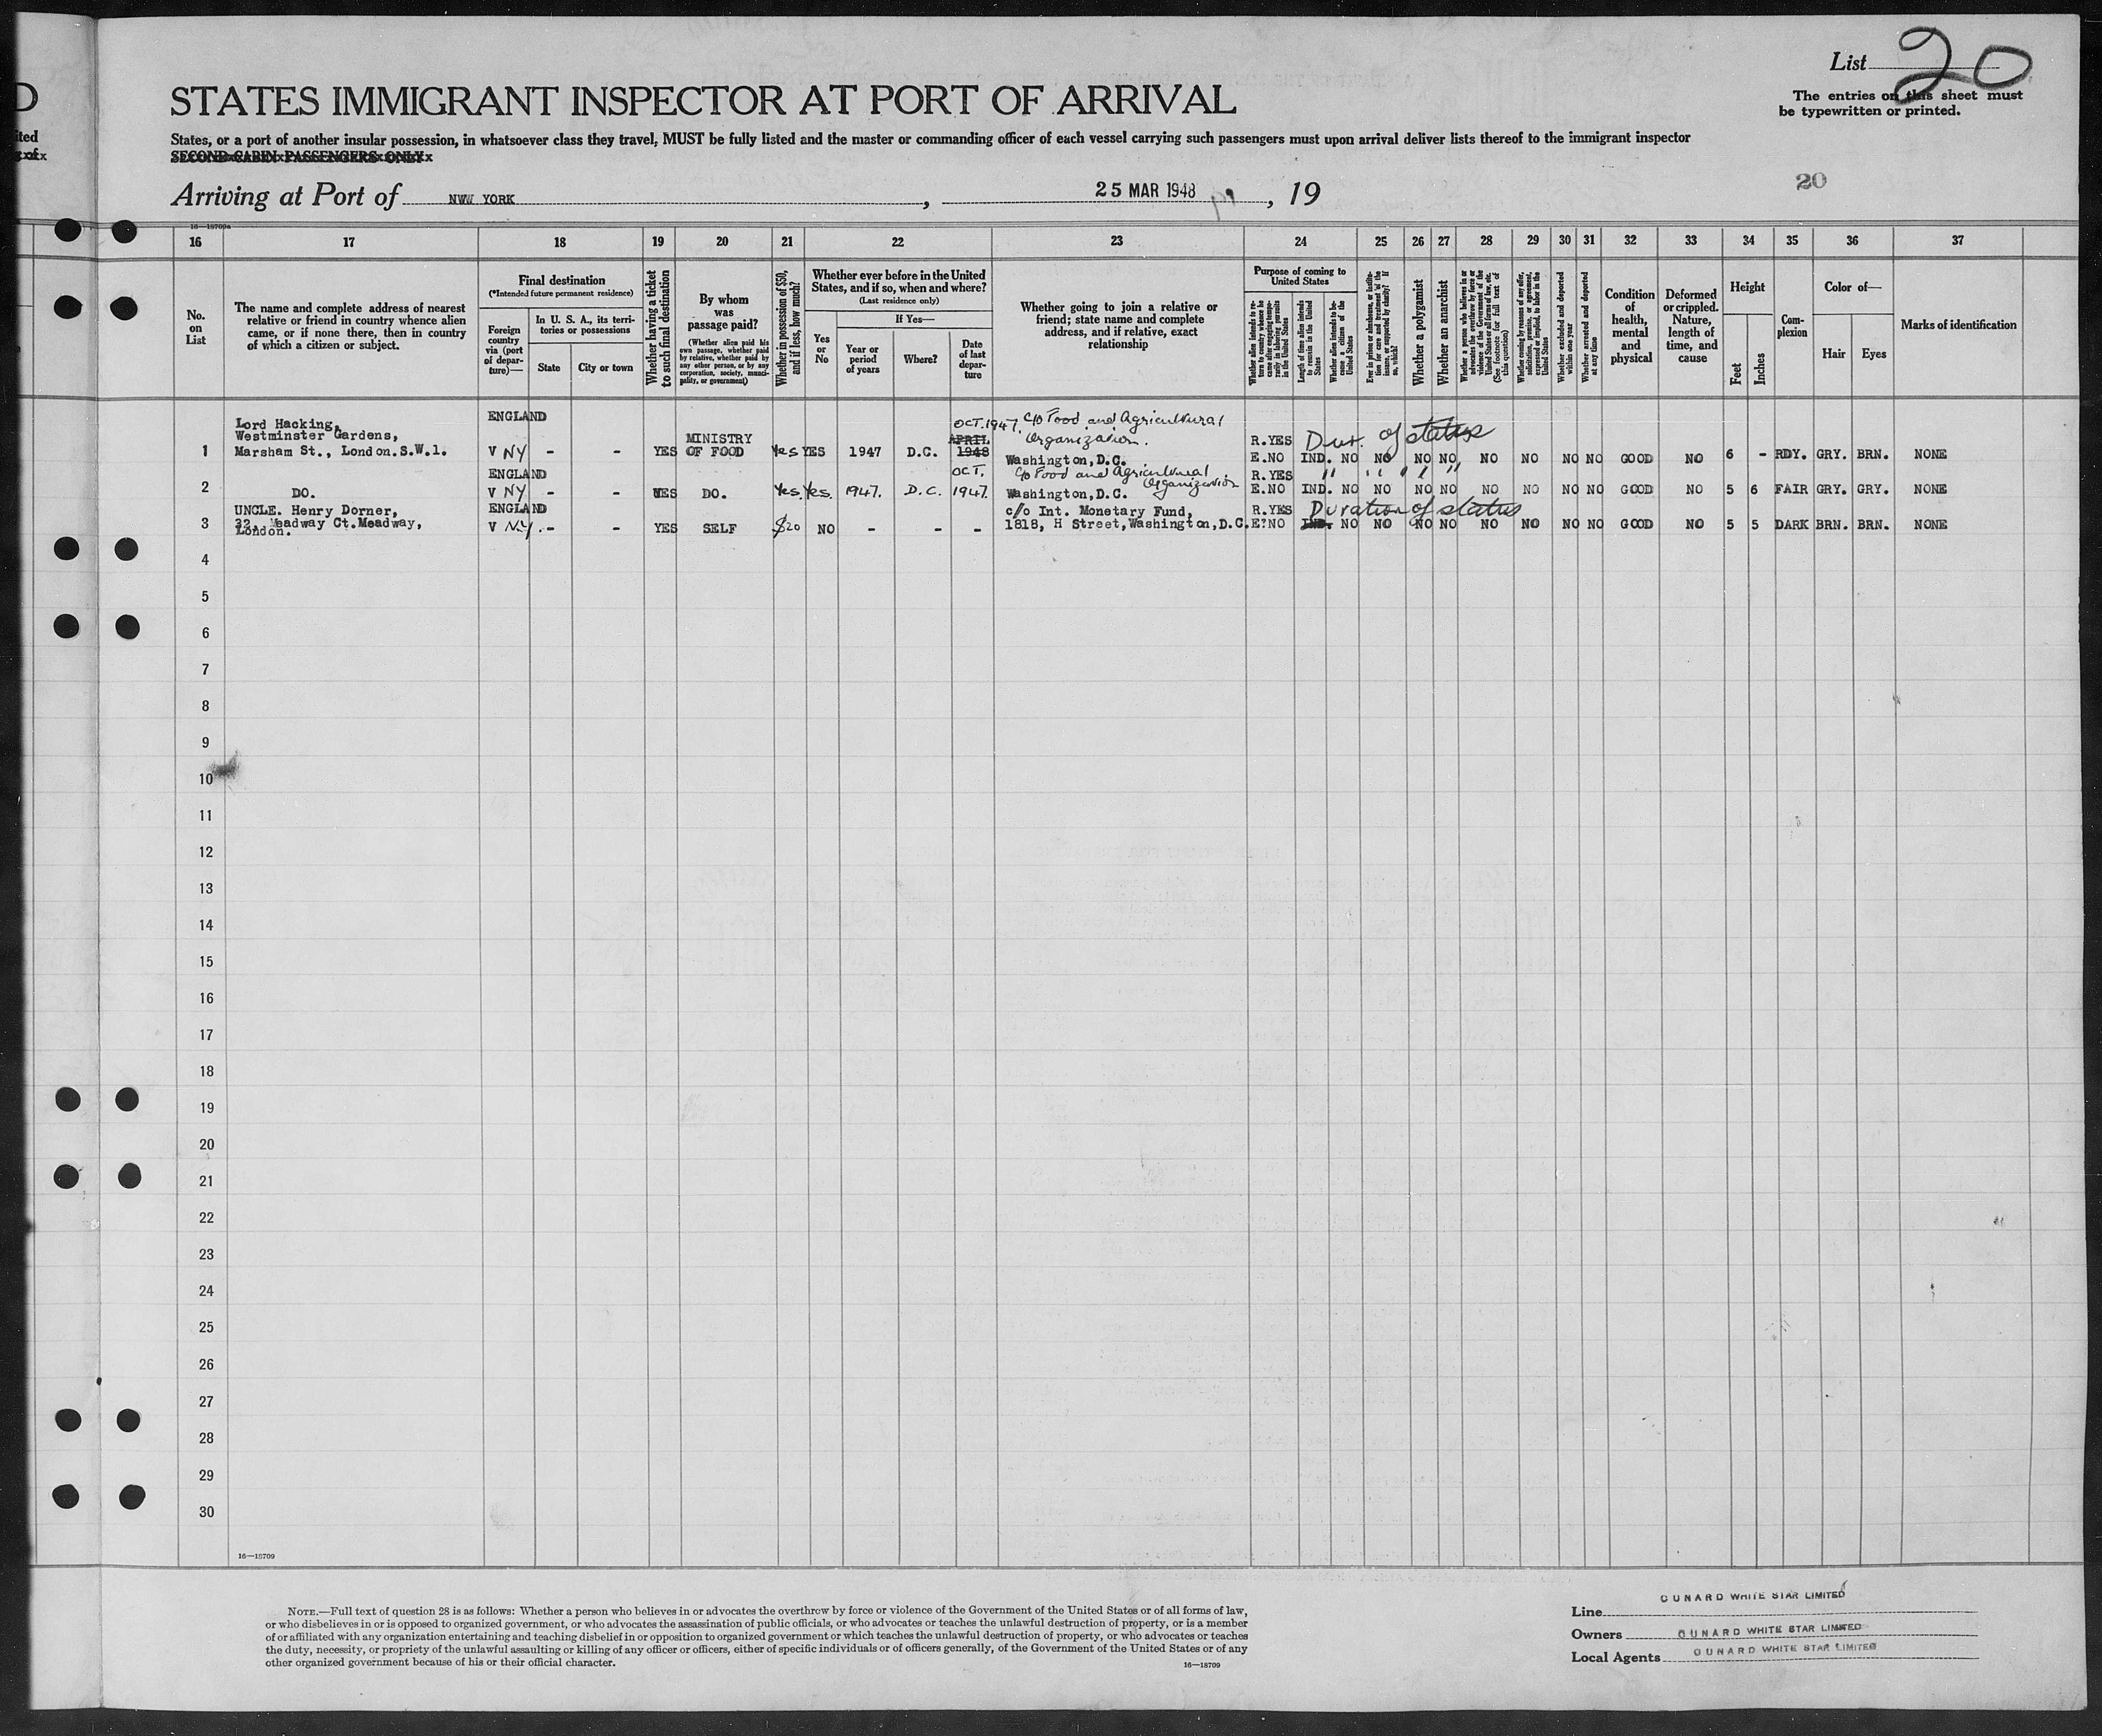 List 20
The entries on this sheet must
be typewritten or printed.
D
STATES IMMIGRANT INSPECTOR AT PORT OF ARRIVAL
ited
States, or a port of another insular possession, in whatsoever class they travel, MUST be fully listed and the master or commanding officer of each vessel carrying such passengers must upon arrival deliver lists thereof to the immigrant inspector
SECOND-CABIN PASSENGERS ONLY
20
Arriving at Port of NWW YORK, 25 MAR 1948, 19
16—18709a
16 17 18 19 20 21 22 23 24 25 26 27 28 29 30 31 32 33 34 35 36 37
No.
on
List
The name and complete address of nearest
relative or friend in country whence alien
came, or if none there, then in country
of which a citizen or subject.
Final destination
(*Intended future permanent residence)
Foreign
country
via (port
of depar-
ture)—
In U. S. A., its terri-
tories or possessions
State
City or town
Whether having a ticket
to such final destination
By whom
was
passage paid?
(Whether alien paid his
own passage, whether paid
by relative, whether paid by
any other person, or by any
corporation, society, munici-
pality, or government)
Whether in possession of $50,
and if less, how much?
Whether ever before in the United
States, and if so, when and where?
(Last residence only)
Yes
or
No
If Yes—
Year or
period
of years
Where?
Date
of last
depar-
ture
Whether going to join a relative or
friend; state name and complete
address, and if relative, exact
relationship
Purpose of coming to
United States
Whether alien intends to re-
turn to country whence he
came after engaging tempo-
rarily in laboring pursuits
in the United States
Length of time alien intends
to remain in the United
States
Whether alien intends to be-
come a citizen of the
United States
Ever in prison or almshouse, or institu-
tion for care and treatment of the
insane, or supported by charity? If
so, which?
Whether a polygamist
Whether an anarchist
Whether a person who believes in or
advocates the overthrow by force or
violence of the Government of the
United States or all forms of law, etc.
(See footnote for full text of
this question)
Whether coming by reason of any offer,
solicitation, promise, or agreement,
expressed or implied, to labor in the
United States
Whether excluded and deported
within one year
Whether arrested and deported
at any time
Condition
of
health,
mental
and
physical
Deformed
or crippled.
Nature,
length of
time, and
cause
Height
Feet
Inches
Com-
plexion
Color of—
Hair
Eyes
Marks of identification
Lord Hacking, ENGLAND OCT. 1947. C/o Food and Agricultural
Westminster Gardens, MINISTRY APRIL Organization. R.YES Dur. of status
1 Marsham St., London.S.W.1. V NY - - YES OF FOOD Yes YES 1947 D.C. 1948 Washington,D.C. E.NO IND. NO NO NO NO NO NO NO NO GOOD NO 6 - RDY. GRY. BRN. NONE
ENGLAND OCT. C/o Food and Agricultural Organization R.YES " " " " "
2 DO. V NY - - YES DO. Yes. Yes. 1947. D.C. 1947. Washington,D.C. E.NO IND. NO NO NO NO NO NO NO NO GOOD NO 5 6 FAIR GRY. GRY. NONE
UNCLE. Henry Dorner, ENGLAND c/o Int. Monetary Fund, R.YES Duration of status
3 32, Meadway Ct.Meadway, V NY. - - YES SELF $20 NO - - - 1818, H Street,Washington,D.C. E?NO IND. NO NO NO NO NO NO NO NO GOOD NO 5 5 DARK BRN. BRN. NONE
London.
4
5
6
7
8
9
10
11
12
13
14
15
16
17
18
19
20
21
22
23
24
25
26
27
28
29
30
16—18709
NOTE.—Full text of question 28 is as follows: Whether a person who believes in or advocates the overthrow by force or violence of the Government of the United States or of all forms of law,
or who disbelieves in or is opposed to organized government, or who advocates the assassination of public officials, or who advocates or teaches the unlawful destruction of property, or is a member
of or affiliated with any organization entertaining and teaching disbelief in or opposition to organized government or which teaches the unlawful destruction of property, or who advocates or teaches
the duty, necessity, or propriety of the unlawful assaulting or killing of any officer or officers, either of specific individuals or of officers generally, of the Government of the United States or of any
other organized government because of his or their official character.
16—18709
Line CUNARD WHITE STAR LIMITED
Owners CUNARD WHITE STAR LIMITED
Local Agents CUNARD WHITE STAR LIMITED